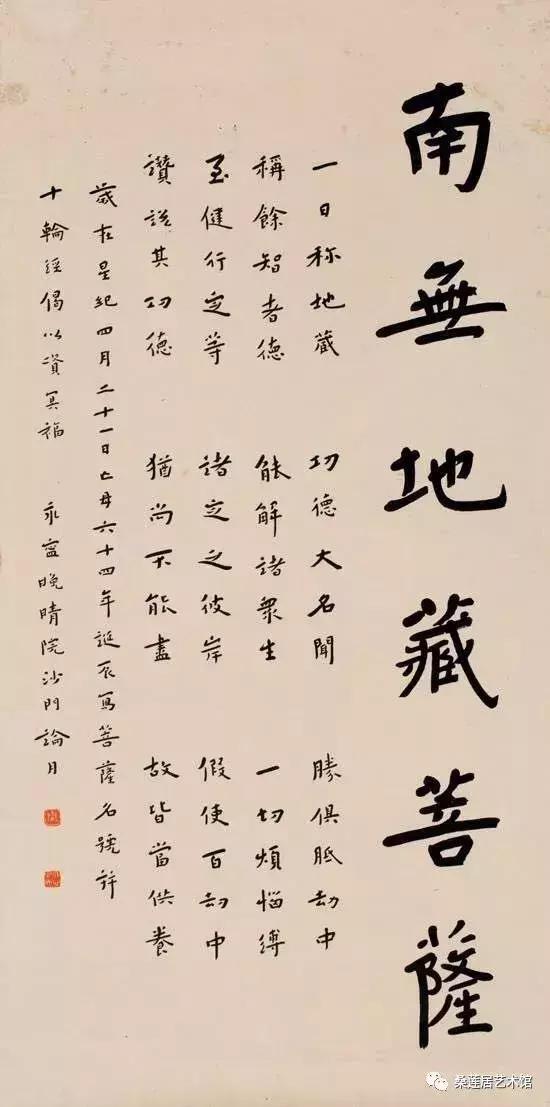 南無地藏菩薩
一日称地藏 功德大名聞 勝俱胝劫中
稱餘智者德 能解諸衆生 一切煩惱縛
至健行定等 諸定之彼岸 假使百劫中
讚説其功德 猶尚不能盡 故皆當供養
歲在星紀四月二十一日亡母六十四年誕辰寫菩薩名號并
十輪經偈以資冥福 永寧晚晴院沙門論月
桑莲居艺术馆